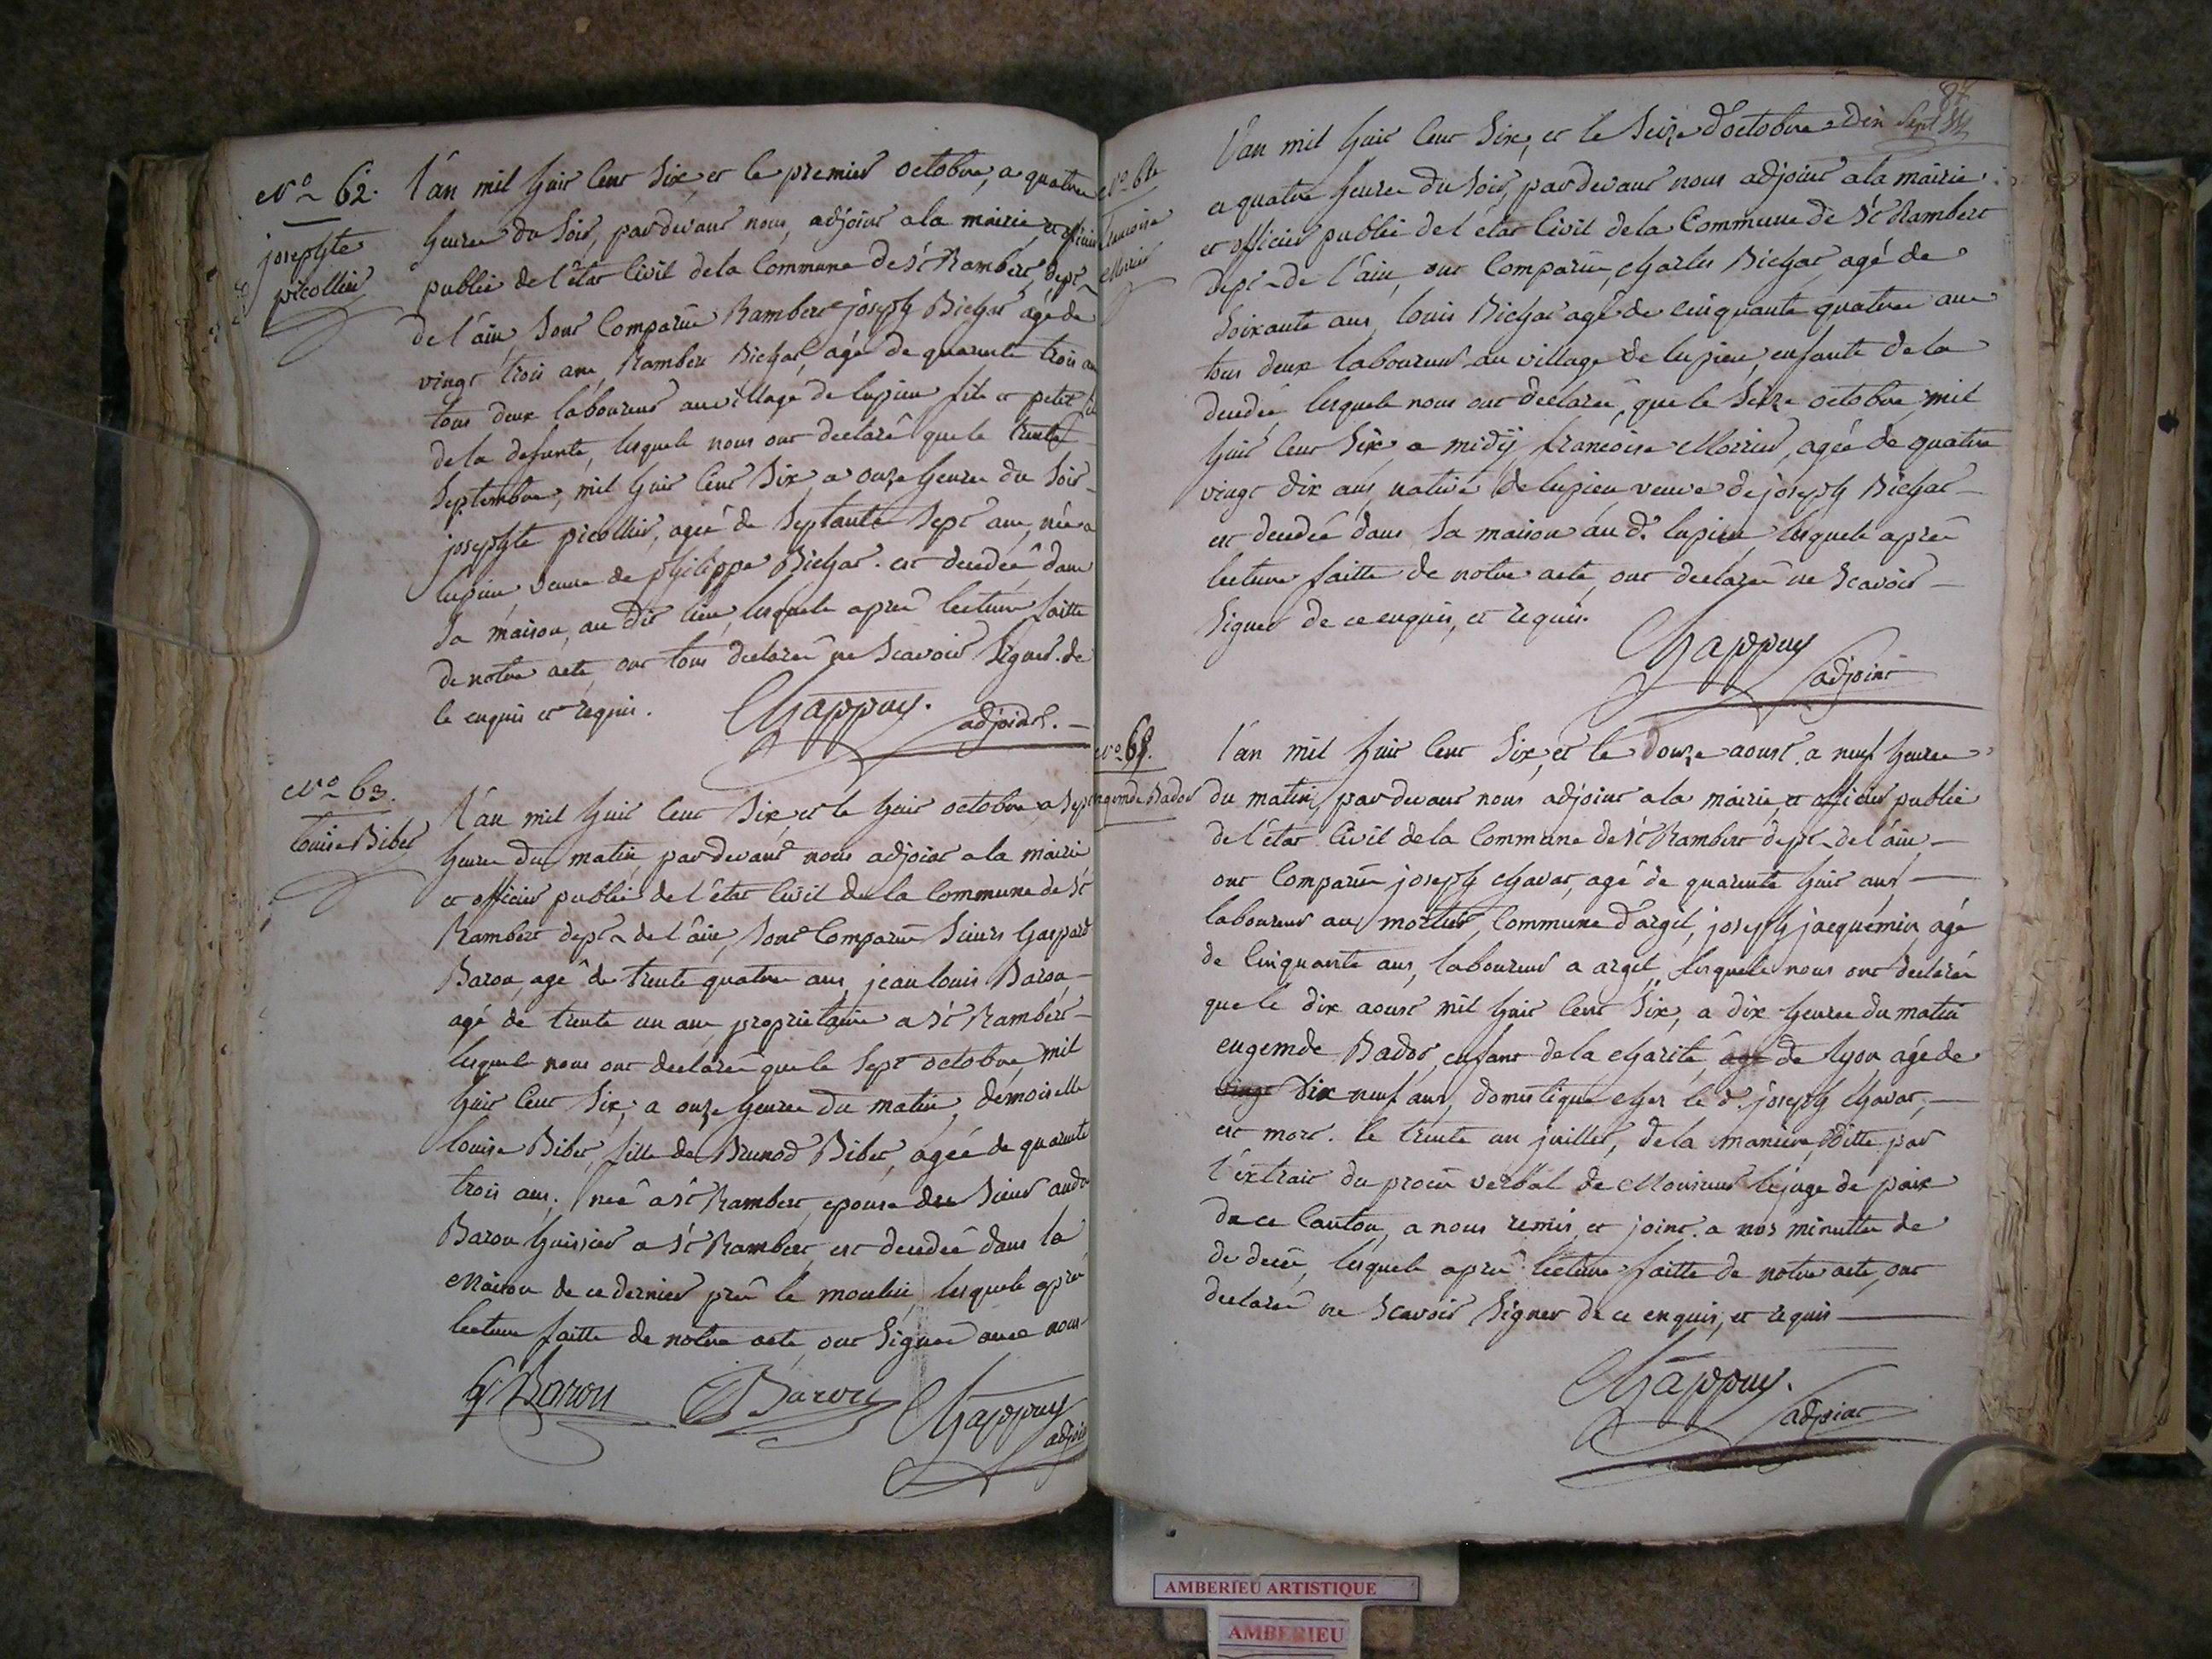 N.o 62.
josephte
picollier
l'an mil huit cent six, et le premier octobre, a quatre
heures du soir, pardevant nous, adjoint a la mairie et officier
public de l'état civil de la commune de St Rambert, dept
de l'ain, sont comparus Rambert joseph Bichat agé de
vingt trois ans, Rambert Bichat, agé de quarente trois ans
tous deux laboureurs au village de lupieu fils et petit fils
de la defunte, lesquels nous ont declaré que le trente
septembre, mil huit cent six a onze heures du soir
josephte picollier, ageé de septante sept ans, née a
lupieu veuve de philippe Bichat. est decedeé dans
sa maison, au dit lieu, lesquels apres lecture faitte
de notre acte, ont tous declarés ne scavoir signer. de
ce enquis et requis.
Chappuy.
adjoint.
N.o 63.
louise Bibet
l'an mil huit cent six, et le huit octobre a sept
heures du matin pardevant nous adjoint a la mairie
et officier public de l'état civil de la commune de St
Rambert dept de l'ain, sont comparus sieurs gaspard
Baron, agé de trente quatre ans, jean louis Baron,
agé de trente un ans proprietaire a St Rambert
lesquels nous ont declarés que le sept octobre, mil
huit cent six, a onze heures du matin, demoiselle
louise Bibet, fille de Brunod Bibet, ageé de quarente
trois ans, neé a St Rambert, epouse du sieur
Baron huissier a St Rambert, est decedeé dans la
maison de ce dernier prés le moulin, lesquels aprés
lecture faitte de notre acte, ont signés avec nous
G Baron
Baron
Chappuy
adjoint
87
N.o 64
francoise
Morier
l'an mil huit cent six, et le seize d'octobre
a quatre heures du soir, pardevant nous adjoint a la mairie
et officier public de l'état civil de la commune de St Rambert
dept de l'ain, ont comparus, charles Bichat, agé de
soixante ans, louis Bichat agé de cinquante quatre ans
tous deux laboureurs au village de lupieu, enfants de la
decedeé, lesquels nous ont declarés, que le seize octobre mil
huit cent six, a midÿ, francoise Morier, agée de quatre
vingt dix ans native de lupieu, veuve de joseph Bichat
est decedeé dans sa maison au d. lupieu, lesquels aprés
lecture faitte de notre acte, ont declarés ne scavoir
signer de ce enquis, et requis.
Chappuy
adjoint
N.o 65.
engemde Bador
l'an mil huit cent six, et le douze aoust a neuf heures
du matin, pardevant nous adjoint a la mairie, et officier public
de l'état civil de la commune de St Rambert dept de l'ain,
ont comparus joseph chavat, agé de quarente huit ans
laboureur au mortier, commune d'argil, joseph jacquemin, agé
de cinquante ans, laboureur a argil, lesquels nous ont declarés
que le dix aoust mil huit cent six, a dix heures du matin
engemde Bador, enfant de la charité age de lyon, agé de
vingt dix neuf ans, domestique chez le d. joseph chavat,
est mort. le trente un juillet, de la maniere, ditte par
l'extrait du procés verbal de Monsieur le juge de paix
de ce canton, a nous remis, et joint a nos minuttes de
de decés, lesquels aprés lecture faitte de notre acte, ont
declarés ne scavoir signer de ce enquis, et requis
Chappuy.
adjoint
AMBERIEU ARTISTIQUE
AMBERIEU